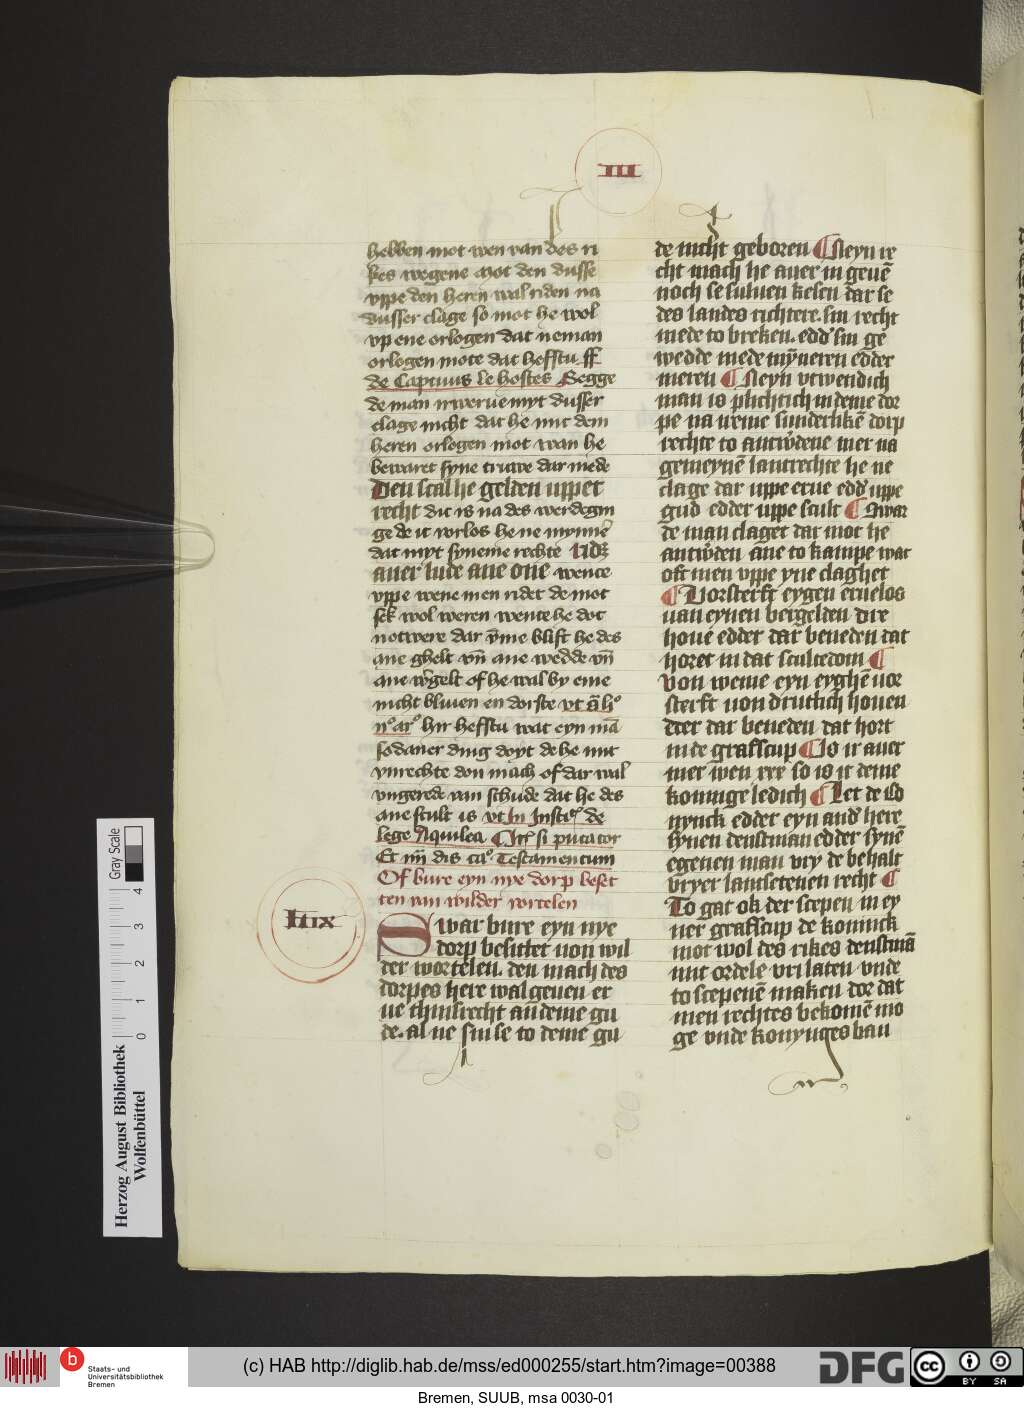 III
hebben mot wen van des ri
kes wegene mot den dusse
vppe den heren wal riden na
dusser clage so mot he wol
vp ene orlogen dat neman
orlogen mote dat hefstu ff
de Captiuis le hostes Segge
de man irweruemyt dusser
clage nicht dat he mit dem
heren orlogen mot wan he
bewaret syne truwe dar mede
Den scal he gelden uppet
recht dit is na des werdegin
ge de it vorlos he ne mynnē
dat myt syneme rechte
auer lude ane one wente
vppe wene men ridet de mot
sek wol weren wente he dot
notwere dar vme blift he des
ane ghelt vn̄ ane wedde vn̄
ane w̓gelt of he wal by eme
nicht bliuen en dorste vt
hir hefstu wat eyn mā
sodaner ding doyt de he mit
vnrechte don mach of dar wal
vngerede van schude dat he des
ane scult is vt In de
lege Aquilea si putator
Et dis Testamentum
Of bure eyn nye dorp beset
ten van wilder wrtelen
lxxix
Swar bure eyn nye
dorp besittet uon wil
der wortelen. den mach des
dorpes here wal geuen er
ue thinsrecht an deme gu
de. al ne sin se to deme gu
de nicht geboren ¶ Neyn re
cht mach he auer in geuē
noch se suluen kesen dar se
des landes richtere. sin recht
mede to breken. edd̓ sin ge
wedde mede mỹneren edder
meren ¶ Neyn vtwendich
man is plichtich in deme dor
pe na urme sunderlikē dorp
rechte to antw̓dene mer na
gemeynē lantrechte he ne
clage dar uppe erue edd̓ uppe
gud edder uppe scult ¶ Swar
de man claget dar mot he
antw̓den ane to kampe war
oft men vppe yne claghet
¶ Vorsterft eygen eruelos
uan eynen bergelden dre
houē edder dar beneden dat
horet in dat scultedom ¶
Von weme eyn eyghē uor
sterft uon drutich houen
dter dar beneden dat hort
in de grafscup ¶ Is ir auer
mer wen xxx so is it deme
konnige ledich ¶ Let de ko
nynck eyn and̓ here
synen denstman edder synē
egenen man vry de behalt
vryer lantseten recht ¶
To gat ok der scepen in ey
ner grafscup de konnick
mot wol des rikes denstmā
mit ordele vri laten vnde
to scepenē maken dor dat
men rechtes bekomē mo
ge vnde konynges ban
Gray Scale
4 3 2 1 0
Herzog August Bibliothek
Wolfenbüttel
b
Staats- und
Universitätsbibliothek
Bremen
(c) HAB http://diglib.hab.de/mss/ed000255/start.htm?image=00388
DFG
cc BY SA
Bremen, SUUB, msa 0030-01